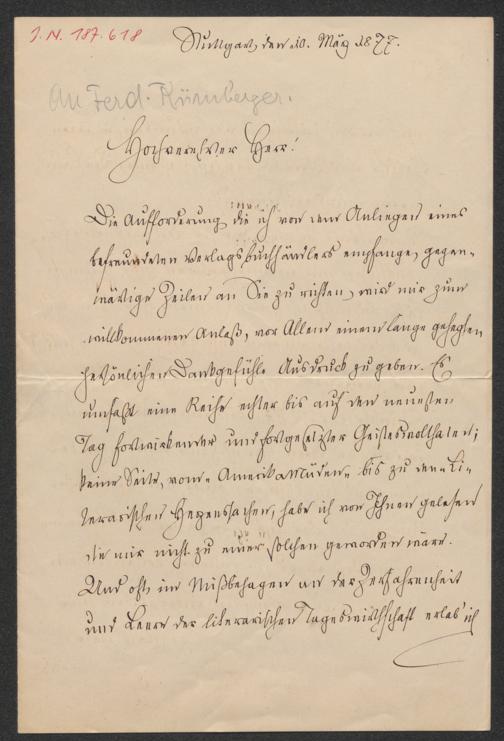 J. N. 187.618
Stuttgart, den 10. März 1877.
An Ferd. Kürnberger.
Hochverehrter Herr!
Die Aufforderung, die ich von dem Anliegen eines
befreundeten Verlagsbuchhändlers empfange, gegen-
wärtige Zeilen an Sie zu richten, wird mir zum
willkommenen Anlaß, vor Allem einem lange gehegten
persönlichen Dankgefühle Ausdruck zu geben. Es
umfaßt eine Reihe echter bis auf den neuesten
Tag fortwirkender und fortgesetzter Geisteswolthaten;
keine Seite, vom „Amerikamüden“ bis zu den „Li-
terarischen Herzenssachen“, habe ich von Ihnen gelesen
die mir nicht zu einer solchen geworden wäre.
Und oft, im Mißbehagen an der Zerfahrenheit
und Leere der literarischen Tageswirthschaft erlab' ich